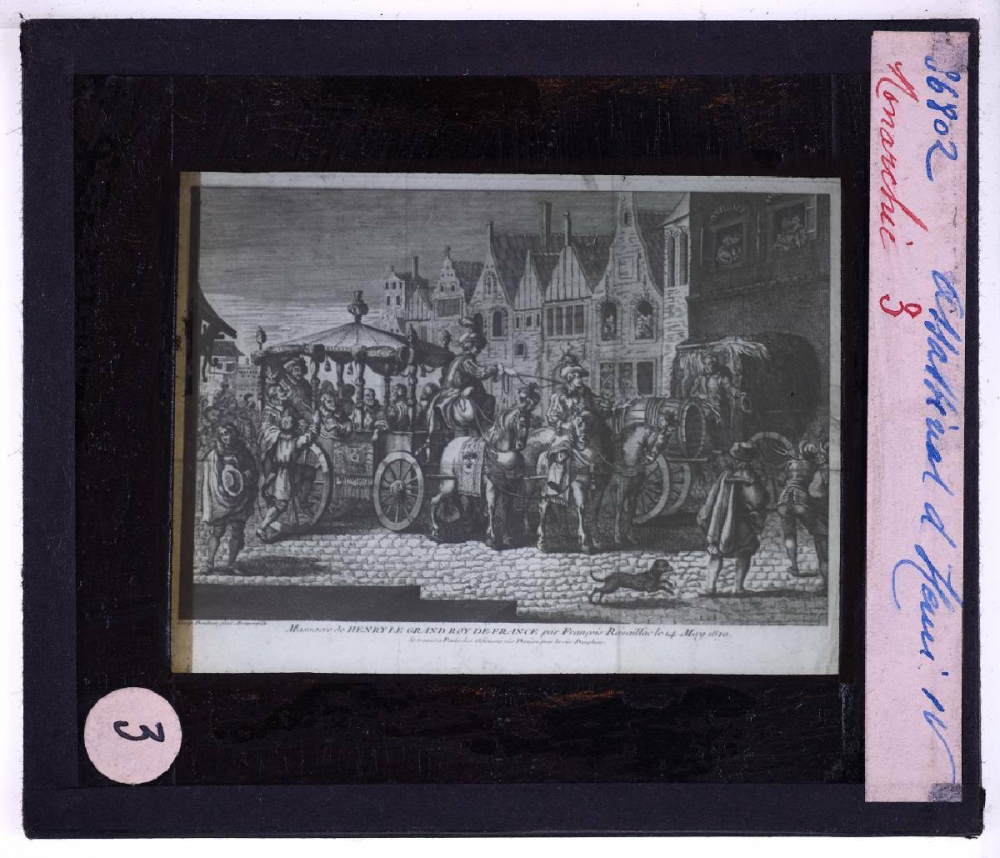 36802 Assassinat d'Henri IV
Monarchie 3
Massacre de HENRY LE GRAND ROY DE FRANCE par François Ravaillac le 14 May 1610.
3